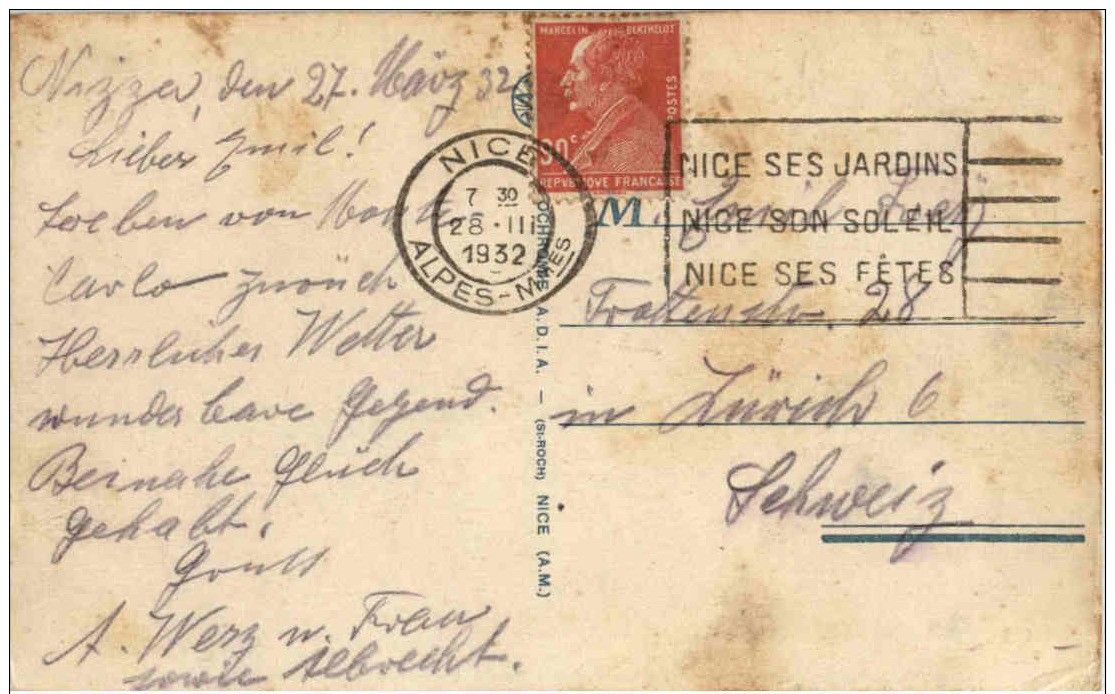 Nizza, den 27. März 32
Lieber Emil!
soeben von Monte
Carlo zurück
Herrliches Wetter
wunderbare Gegend.
Beinahe Glück
gehabt.
Gruss
A. Werz u. Frau
sowie Albrecht.
MARCELIN BERTHELOT
POSTES
90c
REPUBLIQUE FRANÇAISE
NICE
7 30
28 · III
1932
ALPES-MMES
NICE SES JARDINS
NICE SON SOLEIL
NICE SES FÊTES
OCHROME A.D.I.A. — (St-ROCH) NICE (A.M.)
M.
28
in Zürich 6
Schweiz